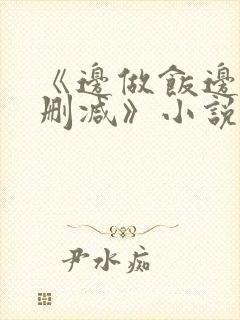 《邊做飯邊
刪減》小說
尹水痴